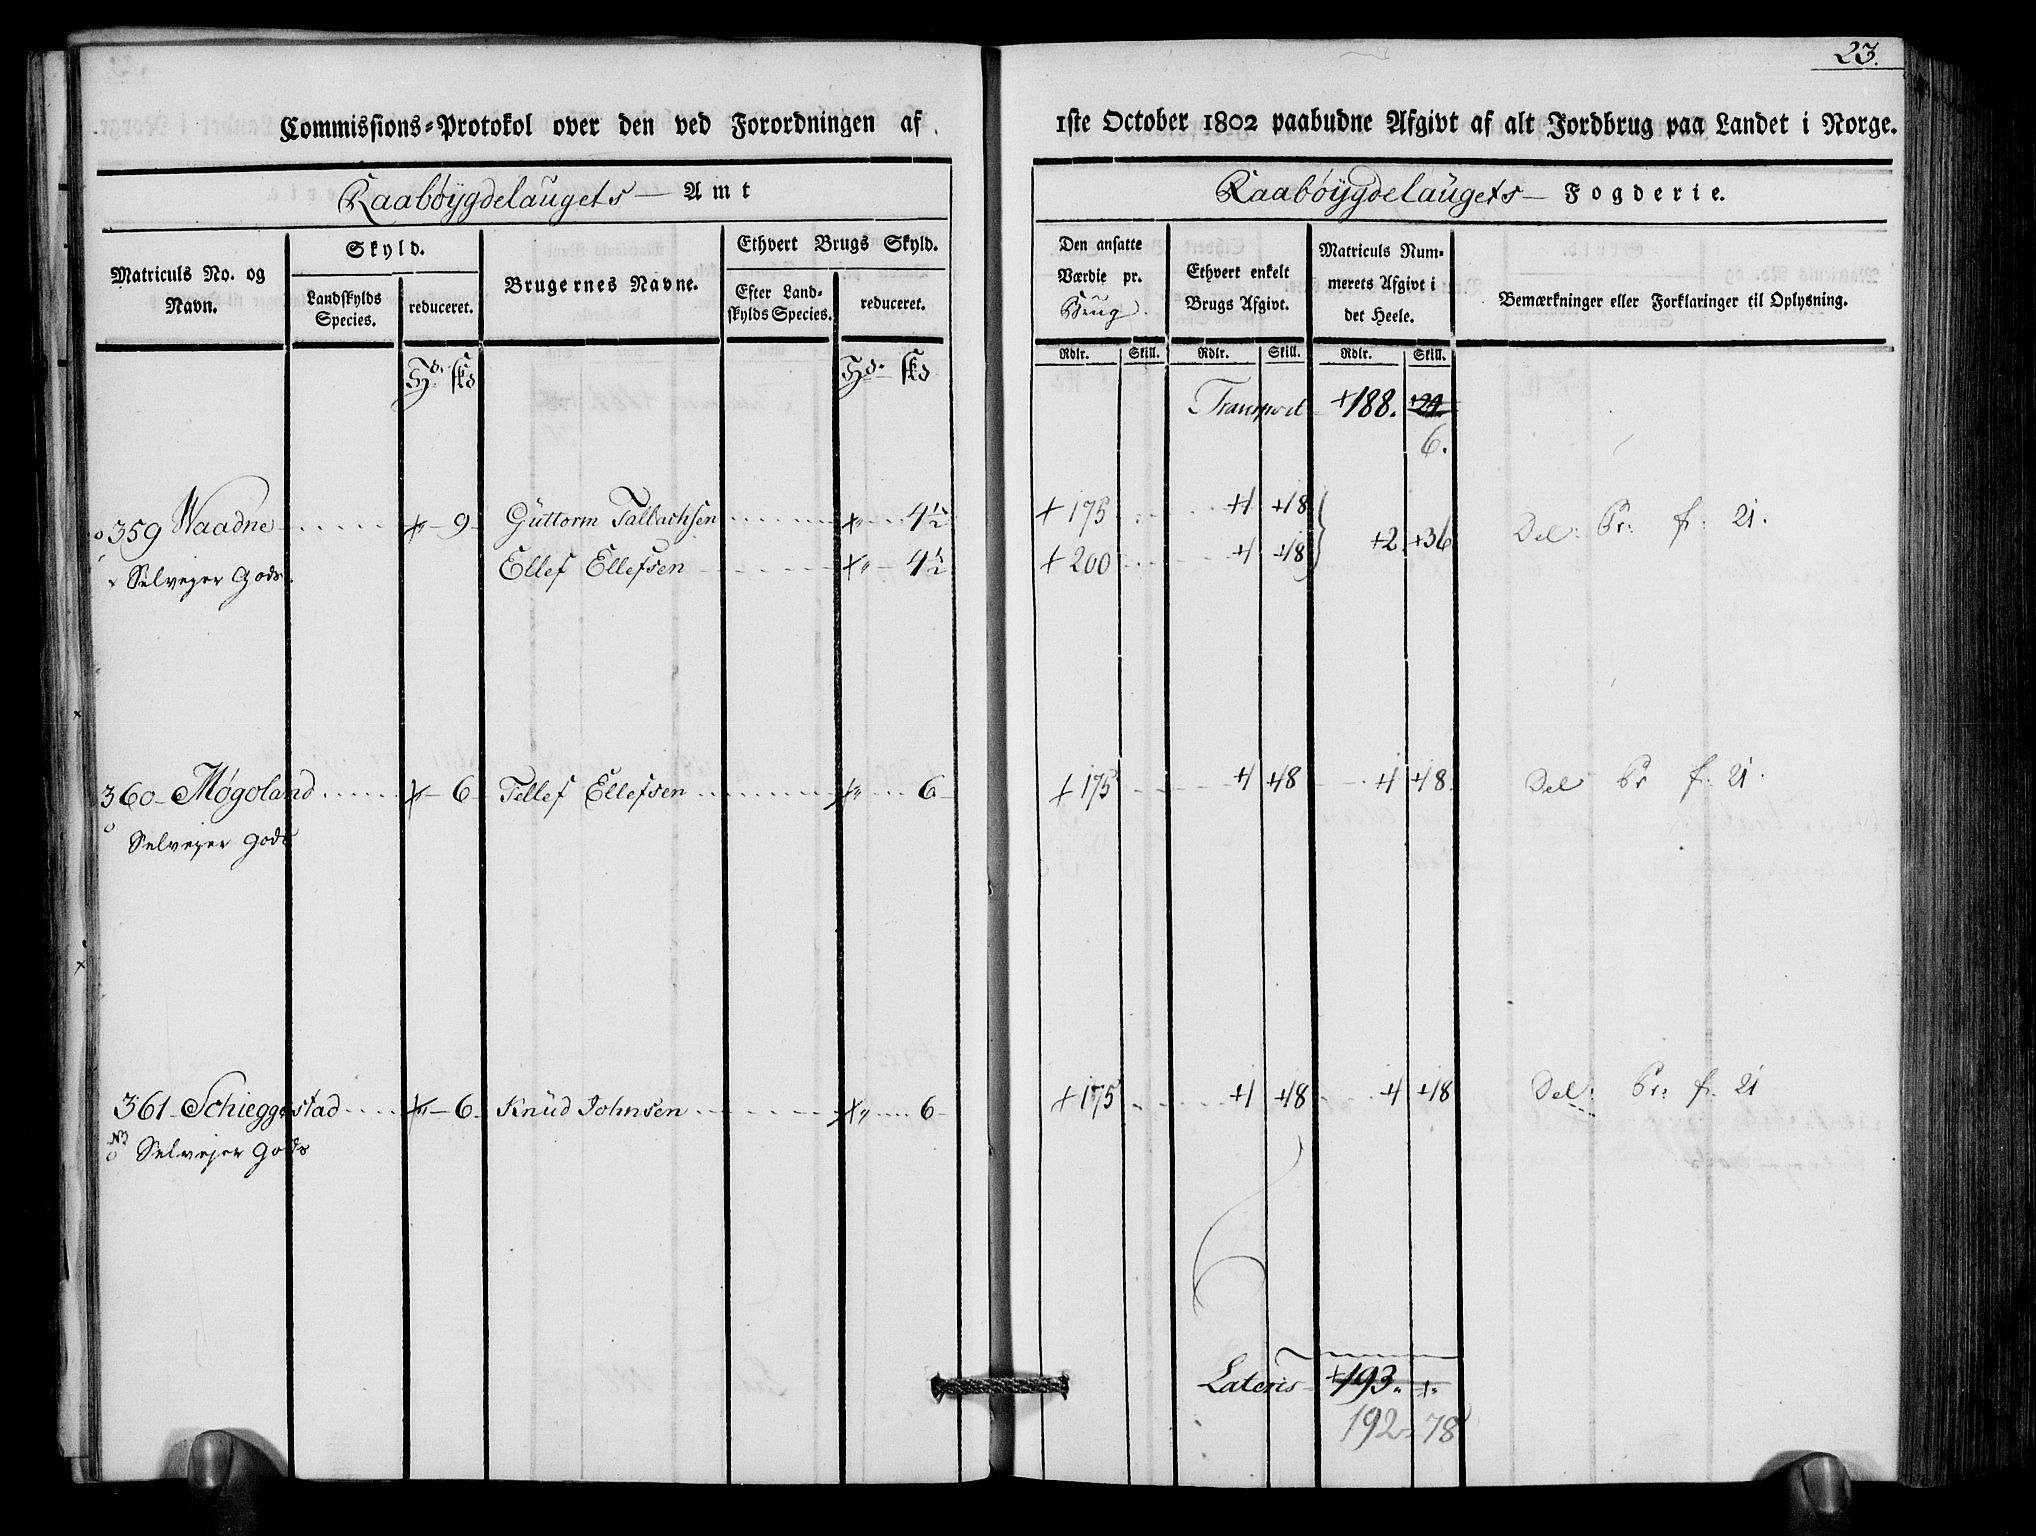 23.
Commissions=Protokol over den ved Forordningen af
1ste October 1802 paabudne Afgivt af alt Jordbrug paa Landet i Norge.
Raabøygdelaugets — Amt
Raabøygdelaugets — Fogderie.
Matriculs No. og Navn.
Skyld.
Landskylds Species.
reduceret.
Brugernes Navne.
Ethvert Brugs Skyld.
Efter Landskylds Species.
reduceret.
Den ansatte Værdie pr. Brug.
Ethvert enkelt Brugs Afgivt.
Matriculs Nummerets Afgivt i det Heele.
Bemærkninger eller Forklaringer til Oplysning.
Rdlr. Skill. Rdlr. Skill. Rdlr. Skill.
Transport +188. +24
6.
359 Waadne 9 Guttorm Tallachsen 4½ +175 +1 +18 +2 +36 Del: Pr: f: 21.
Selvejer Gods. Ellef Ellefsen 4½ +200 +1 +18
360 Møgoland 6 Tellef Ellefsen 6 +175 +1 +48 +1 +48 Del Pr f: 21.
Selvejer Gods
361 Schieggestad 6 Knud Johnsen 6 +175 +1 +48 +1 +48 Del: Pr: f: 21
Selvejer Gods
Lateris +193 "
192 = 78